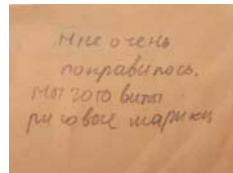 Мне очень
понравилось.
Мы готовили
рисовые шарики